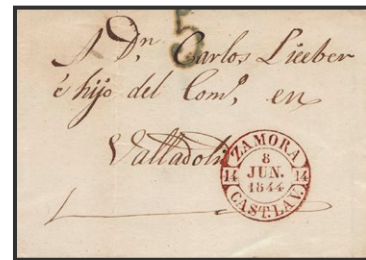 5
A Dn Carlos Lieeber
é hijo del Como, en
Valladolid
ZAMORA
8
14 JUN. 14
1844
CAST. LA V.